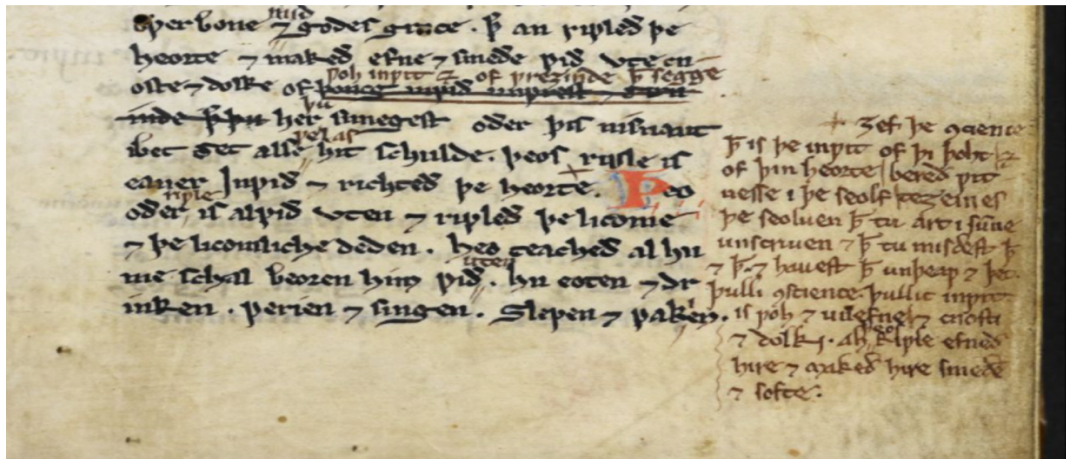 mid
ower boue ⁊ godes grace . þ̄ an riwleð þe
heorte ⁊ makeð efne ⁊ smeðe wið vte cn
woh inwit ⁊ of wreȝinde þ̄ segge
oste ⁊ dolke of
þu
inde þ̄ þu her sunegest oðer þis nis naut
wel as
ibet ȝet alse hit schulde . þeos riwle is
eauer Inwið ⁊ richteð þe heorte . Þeo
riwle
oðer is al wið vten ⁊ riwleð þe licome
⁊ þe licomliche deden . heo teacheð al hu
uten
me schal beoren him wið . hu eoten ⁊ dr
inken . werien ⁊ singen . Slepen ⁊ wakien .
+ ȝef þe ꝯcience
þ̄ is þe inwit of þi þoht ⁊
of þin heorte bereð wit
nesse i þe seolf teȝeines
þe seoluen þ̄ tu art i sunne
unscriuen ⁊ þ̄ tu misdest þ̄
⁊ þ̄ . ⁊ hauest þ̄ unþeaw ⁊ þet
þulli ꝯscience . þullic inwit
is woh ⁊ vnefne ⁊ cnosti
⁊ dolki . ah þeos riwle efneð
hire ⁊ makeð hire smeðe
⁊ softe .